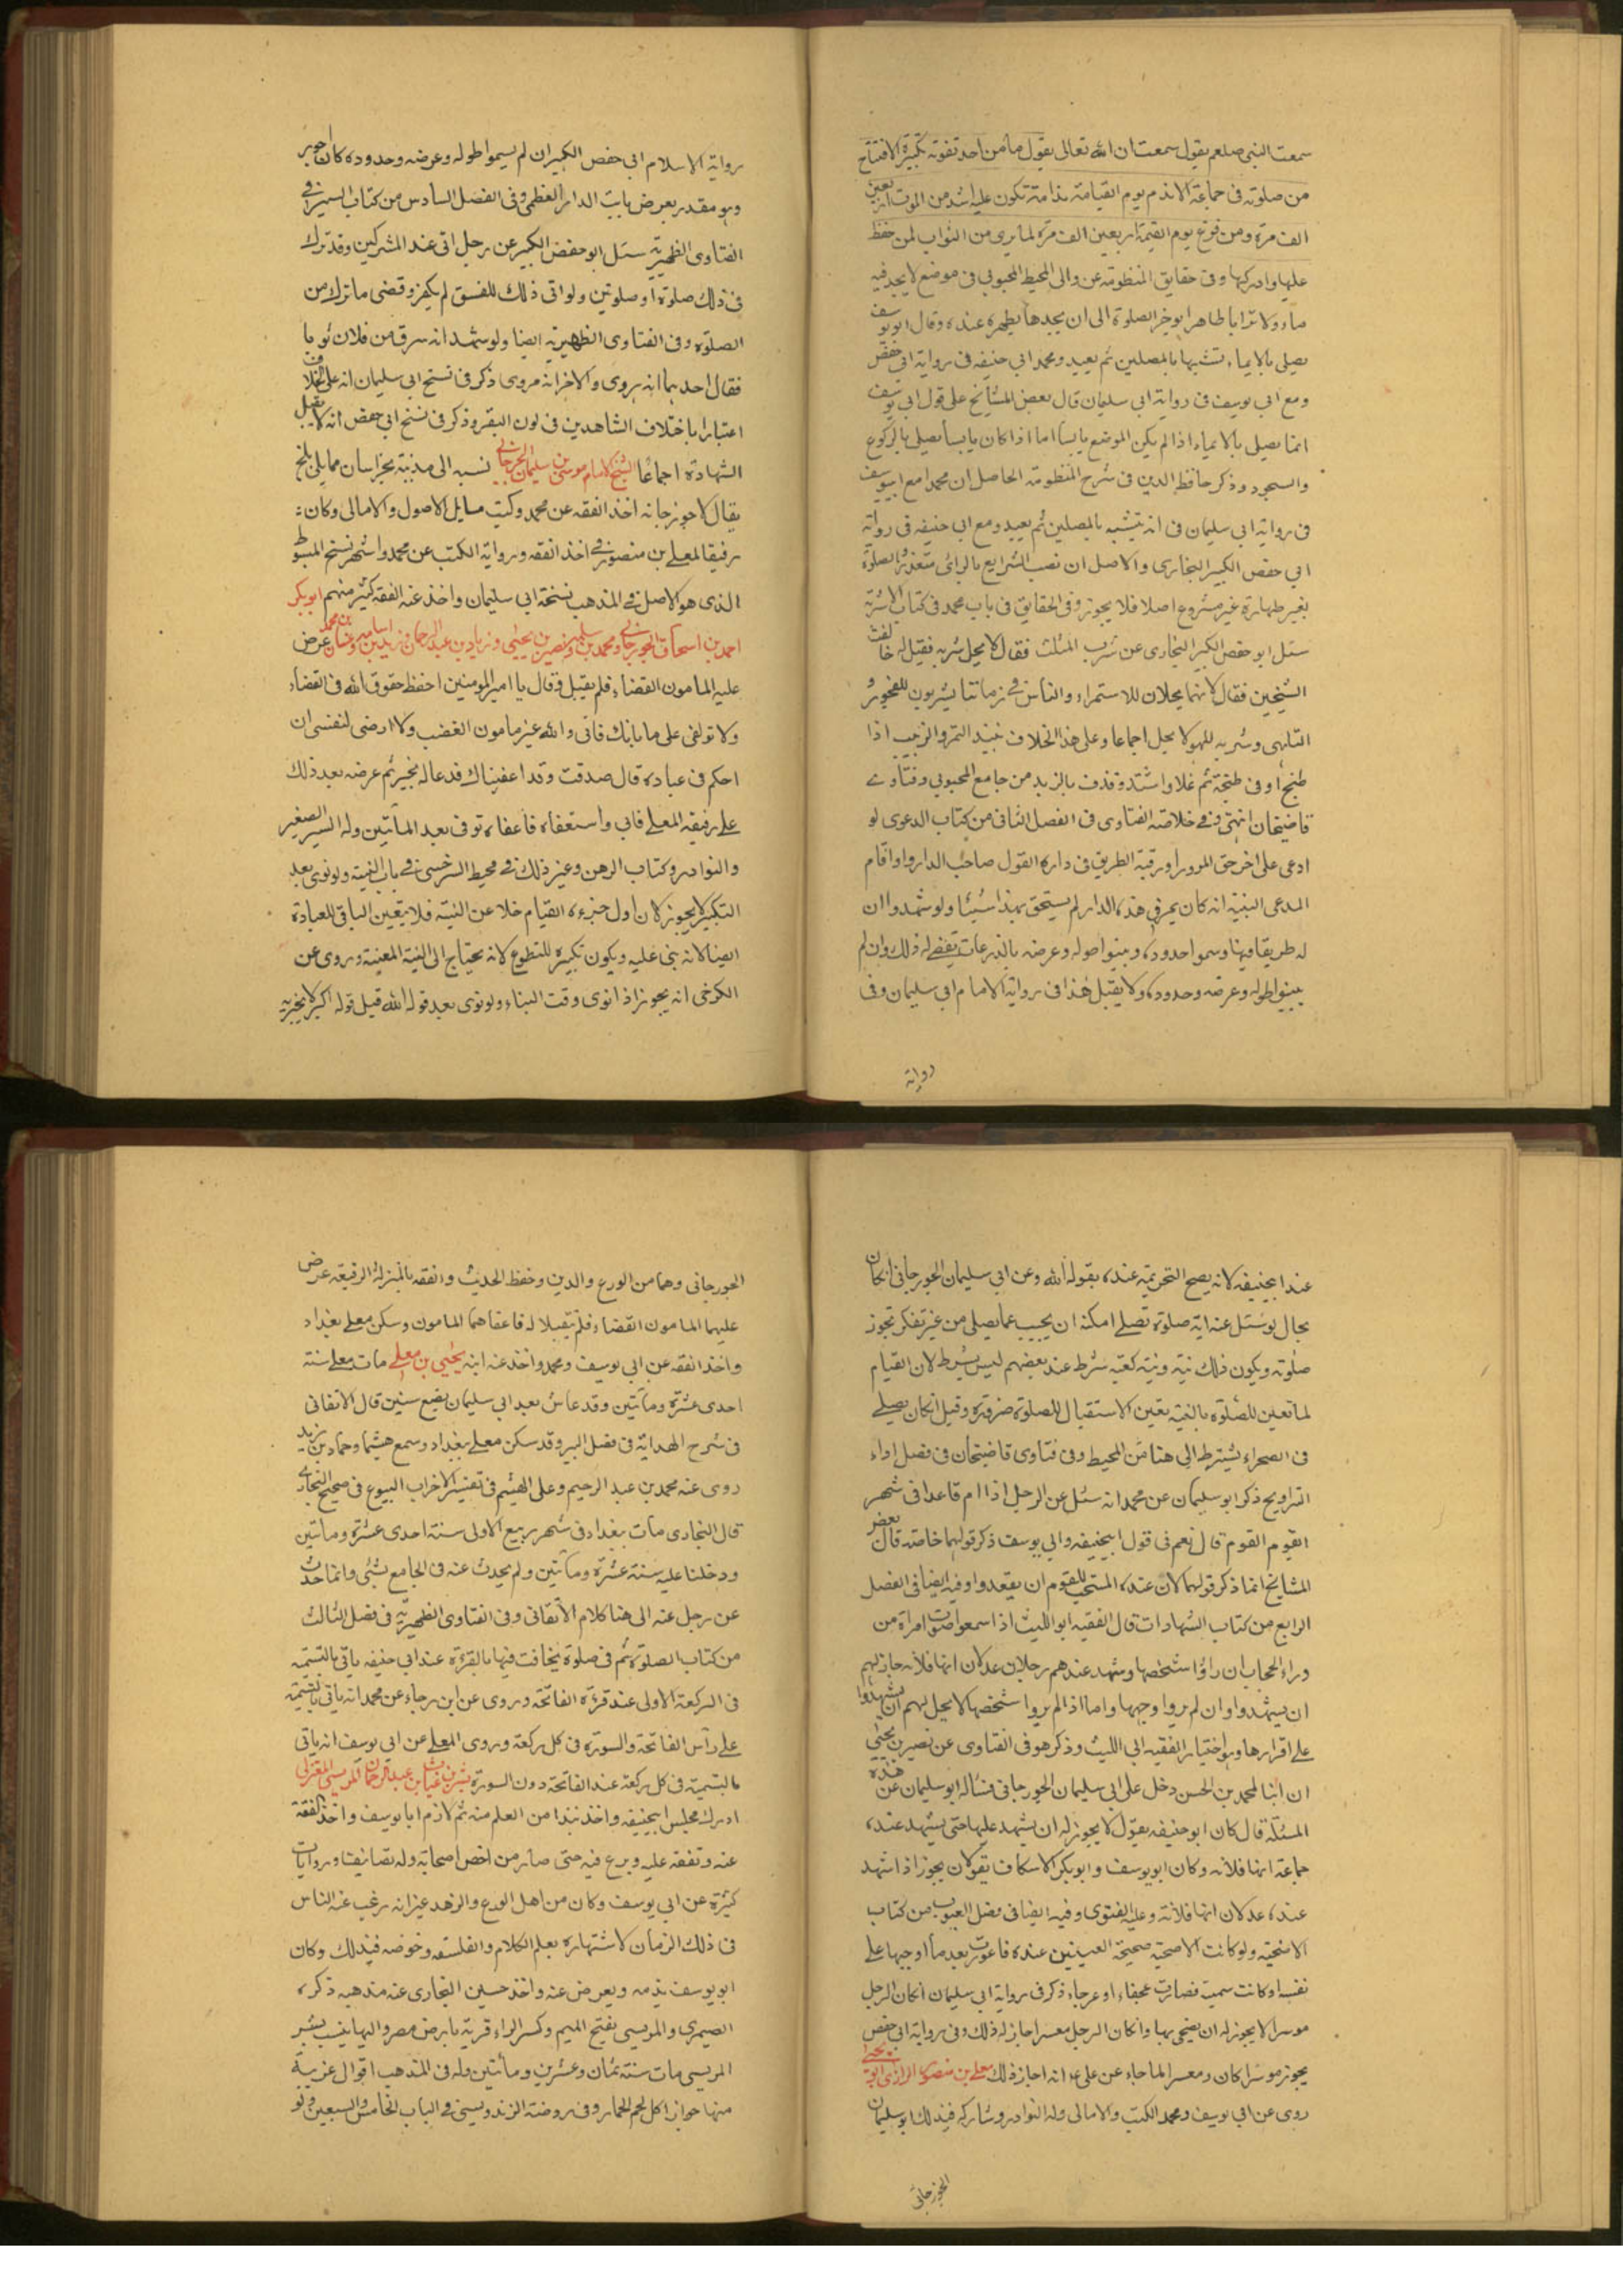 سمعت النبي صلعم يقول سمعت ان الله تعالى يقول ما من احد تفوته تكبيرة الافتتاح
من صلوته فى جماعة الا ندم يوم القيامة ندامة تكون عليه اشد من الموت اربعين
الف مرة ومن فزع يوم القيمة اربعين الف مرة لما يرى من الثواب لمن حفظ
عليها وادركها وفى حقايق المنظومة عن والى المحيط المحبوبى فى موضع لا يجد فيه
ماء ولا ترابا طاهرا يوخر الصلوة الى ان يجدهما يطهره عنده وقال ابو يوسف
يصلى بالايماء تشبها بالمصلين ثم يعيد ومحمد ابى حنيفه فى رواية ابى حفص
ومع ابى يوسف فى رواية ابى سليمان قال بعض المشايخ على قول ابى يوسف
انما يصلى بالايماء اذا لم يكن الموضع يابسا اما اذا كان يابسا يصلى بالركوع
والسجود وذكر حافظ الدين فى شرح المنظومة الحاصل ان محمدا مع ابى يوسف
فى رواية ابى سليمان فى انه يتشبه بالمصلين ثم يعيد ومع ابى حنيفه فى رواية
ابى حفص الكبير البخارى والاصل ان نصب الشرايع بالرائ متعذر والصلوة
بغير طهارة غير مشروع اصلا فلا يجوز وفى الحقايق فى باب محمد فى كتاب الاشربة
سئل ابو حفص الكبير البخارى عن شرب المثلث فقال لا يحل شربه فقيل له خالفت
الشيخين فقال لانهما يحلان للاستمراء والناس فى زماننا يشربون للفجور و
التلهى وشربه للهو لا يحل اجماعا وعلى هذا الخلاف نبيذ التمر والزبيب اذا
طبخ اوفى طبخة ثم غلا واشتد وقذف بالزبد من جامع المحبوبى وفتاوى
قاضيخان انتهى وفى خلاصة الفتاوى فى الفصل الثانى من كتاب الدعوى لو
ادعى على اخر حق المرور او رقبة الطريق فى داره القول صاحب الدار ولو اقام
المدعى البينة انه كان يمر فى هذه الدار لم يستحق بهذا شيئا ولو شهدوا ان
له طريقا فيها وسموا حدوده وبينوا طوله وعرضه بالذرعات يقضى له ذلك وان لم
يبينوا طوله وعرضه وحدوده ولا يقبل هذا فى رواية الامام ابى سليمان وفى
رواية
رواية الاسلام ابى حفص الكبير ان لم يسموا طوله وعرضه وحدوده كان اجوبر
وهو مقدر بعرض باب الدار العظمى وفى الفصل السادس من كتاب السير فى
الفتاوى الظهيرية سئل ابو حفص الكبير عن رجل اتى عند المشركين وقد ترك
فى ذلك صلوة او صلوتين ولو اتى ذلك للفسق لم يكفر وقضى ما ترك من
الصلوة وفى الفتاوى الظهيرية ايضا ولو شهد انه سرق من فلان ثوبا
فقال احدهما انه هروى والاخر انه مروى ذكر فى نسخ ابى سليمان انه على الخلاف
اعتبارا باختلاف الشاهدين فى لون البقر وذكر فى نسخ ابى حفص انه لا يقبل
الشهادة اجماعا الشيخ الامام موسى بن سليمان الجوزجانى نسبه الى مدينة بخراسان مما يلى بلخ
يقال لا جوزجانه اخذ الفقه عن محمد وكتب مسايل الاصول والامالى وكان
رفيقا لمعلى بن منصور فى اخذ الفقه ورواية الكتب عن محمد واشهر نسخ المبسوط
الذى هو الاصل فى المذهب نسخة ابى سليمان واخذ عنه الفقه كثير منهم ابو بكر
احمد بن اسحاق الجوزجانى ومحمد بن سلمه ونصير بن يحيى وزياد بن عبد الرحمان وزيد بن اسامه وغسان بن محمد عرض
عليه المامون القضاء فلم يقبل وقال يا امير المومنين احفظ حقوق الله فى القضاء
ولا تولى على امانتك فانى والله غير مامون الغضب ولا ارضى لنفسى ان
احكم فى عباده قال صدقت وقد اعفيناك فدعا له بخير ثم عرضه بعد ذلك
على رفيقه المعلى فابى واستعفاه فاعفاه توفى بعد المأتين وله السير الصغير
والنوادر وكتاب الرهن وغير ذلك فى محيط السرخسى فى باب النية ولو نوى بعد
التكبير لا يجوز لان اول جزء القيام خلا عن النية فلا يتعين الباقى للعبادة
ايضا لانه بنى عليه ويكون تكبيره للتطوع لانه يحتاج الى النية المعينة وروى عن
الكرخى انه يجوز اذا نوى وقت الثناء ولو نوى بعد قوله الله قبل قوله اكبر لا يجزيه
عند ابى حنيفه لانه يصح التحريمة عنده بقوله الله وعن ابى سليمان الجوزجانى ان كان
بحال لو سئل عنه اية صلوة تصلى امكنه ان يجيب عما يصلى من غير تفكر تجوز
صلوته ويكون ذلك نية ونية كعبه شرط عند بعضهم ليس بشرط لان القيام
لما تعين للصلوة بالنية يتعين الاستقبال للصلوة ضرورة وقيل ان كان يصلى
فى الصحراء يشترط الى هنا من المحيط وفى فتاوى قاضيخان فى فصل اداء
التراويح ذكر ابو سليمان عن محمد انه سئل عن الرجل اذا ام قاعدا فى شهر
القوم القوم قال نعم فى قول ابى حنيفه وابى يوسف ذكر قولهما خاصة قال بعض
المشايخ انما ذكر قولهما لان عنده المستحب للقوم ان يقعدوا وفيه ايضا فى الفصل
الرابع من كتاب الشهادات قال الفقيه ابو الليث اذا سمعوا صوت امراة من
وراء الحجاب ان راؤا شخصها وشهد عندهم رجلان عدلان انها فلانه جاز لهم
ان يشهدوا وان لم يروا وجهها واما اذا لم يروا شخصها لا يحل لهم ان يشهدوا
على اقرارها وهو اختيار الفقيه ابى الليث وذكر هو فى الفتاوى عن نصير بن يحيى
ان ابنا لمحمد بن الحسن دخل على ابى سليمان الجوزجانى فساله ابو سليمان عن هذه
المسئلة قال كان ابو حنيفه يقول لا يجوز له ان يشهد عليها حتى يشهد عنده
جماعة انها فلانه وكان ابو يوسف وابو بكر الاسكاف يقولان يجوز اذا شهد
عنده عدلان انها فلانة وعليه الفتوى وفيه ايضا فى فصل العيوب من كتاب
الاضحية ولو كانت الاضحية صحيحة العينين عنده فاعورت بعد ما اوجبها على
نفسه او كانت سمينة فصارت عجفاء او عرجاء ذكر فى رواية ابى سليمان ان كان الرجل
موسرا لا يجوز له ان يضحى بها وان كان الرجل معسرا جاز له ذلك وفى رواية ابى حفص
يجوز موسرا كان ومعسرا لما جاء عن على انه اجاز ذلك معلى بن منصور الرازى ابو يحيى
روى عن ابى يوسف ومحمد الكتب والامالى وله النوادر وشاركه فى ذلك ابو سليمان
الجوزجانى
الجوزجانى وهما من الورع والدين وحفظ الحديث والفقه بالمنزلة الرفيعة عرض
عليهما المامون القضاء فلم يقبلا له فاعفاهما المامون وسكن معلى بغداد
واخذ الفقه عن ابى يوسف ومحمد واخذ عنه ابنه يحيى بن معلى مات معلى سنة
احدى عشرة ومأتين وقد عاش بعد ابى سليمان بضع سنين قال الاتقانى
فى شرح الهداية فى فصل البير وقد سكن معلى ببغداد وسمع هشيما وحماد بن زيد
روى عنه محمد بن عبد الرحيم وعلى الهيثم فى تفسير الاخراب البيوع فى صحيح البخارى
قال البخارى مات ببغداد فى شهر ربيع الاولى سنة احدى عشرة ومأتين
ودخلنا عليه سنة عشرة ومأتين ولم يحدث عنه فى الجامع بشئ وانما حدث
عن رجل عنه الى هنا كلام الأتقانى وفى الفتاوى الظهيرية فى فصل الثالث
من كتاب الصلوة ثم فى صلوة يخافت فيها بالقرءة عند ابى حنيفه ياتى بالتسمية
فى الركعة الاولى عند قرءة الفاتحة وروى عن ابن رجاء عن محمد انه ياتى بالتسمية
على رأس الفاتحة والسورة فى كل ركعة وروى المعلى عن ابى يوسف انه ياتى
بالتسمية فى كل ركعة عند الفاتحة دون السورة بشر بن غياث بن عبد الرحمان المريسى المعتزلى
ادرك مجلس ابى حنيفه واخذ نبذا من العلم منه ثم لازم ابا يوسف واخذ الفقه
عنه وتفقه عليه وبرع فيه حتى صار من اخص اصحابه وله تصانيف وروايات
كثيرة عن ابى يوسف وكان من اهل الورع والزهد غير انه رغب عنه الناس
فى ذلك الزمان لاشتهاره بعلم الكلام والفلسفه وخوضه فى ذلك وكان
ابو يوسف يذمه ويعرض عنه واخذ حسين النجارى عنه مذهبه ذكره
الصيمرى والمريسى بفتح الميم وكسر الراء قرية بارض مصر واليها ينسب بشر
المريسى مات سنة ثمان وعشرين ومأتين وله فى المذهب اقوال غريبة
منها جواز اكل لحم الحمار وفى روضة الزندويستى فى الباب الخامس والسبعين ولو